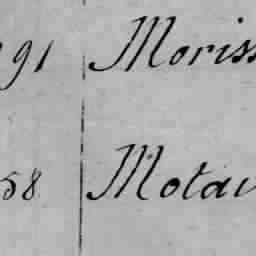 91 Moriss
58 Motai